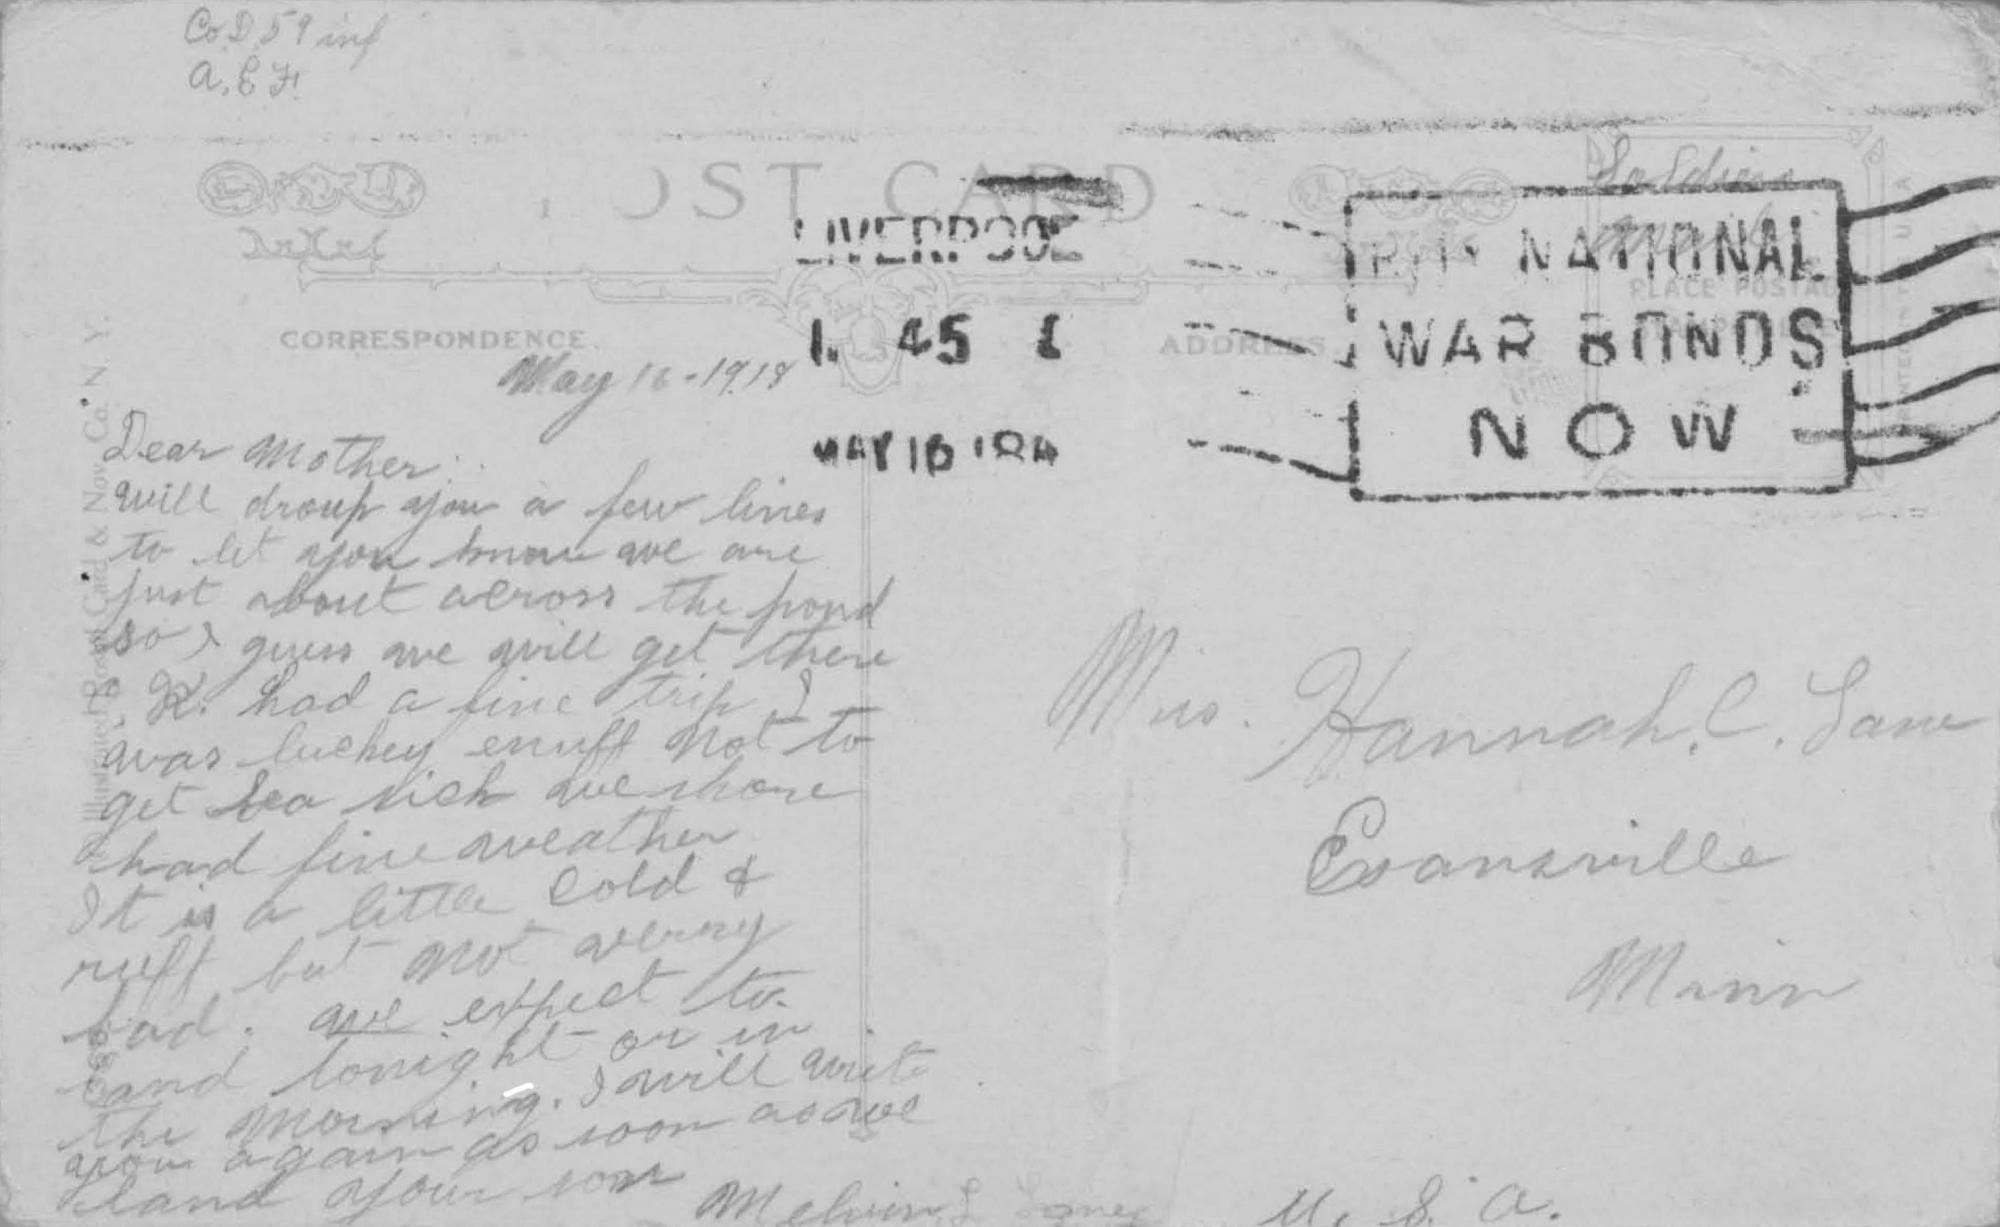 Co D 59 inf
A. E F.
POST CARD
Soldiers
mail
LIVERPOOL
BUY NATIONAL
WAR BONDS
NOW
PLACE POSTAGE
CORRESPONDENCE
ADDRESS
1. 45
MAY 16
May 16 - 1918
Dear Mother
will droup you a few lines
to let you know we are
just about across the pond
so I guess we will get there
O, K. had a fine trip I
was luckey enuff not to
get sea sick we shore
had fine weather
It is a little cold &
ruff but not verry
bad. we expect to
land tonight or in
the morning. I will write
you again as soon as we
land your son
Melvin L
Mrs. Hannah, C.
Evansville
Minn
U. S. A.
Illustrated Postal Card & Nov. Co. N. Y.